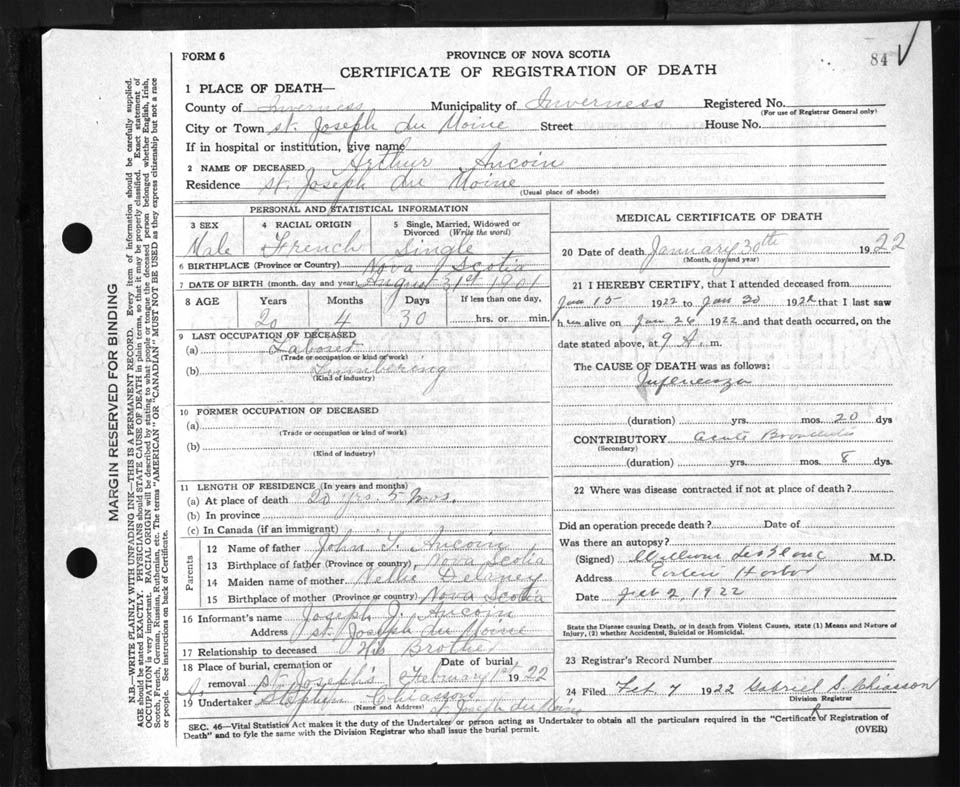 FORM 6
PROVINCE OF NOVA SCOTIA
84
CERTIFICATE OF REGISTRATION OF DEATH
1 PLACE OF DEATH—
County of Inverness Municipality of Inverness Registered No.
(For use of Registrar General only)
City or Town St. Joseph du Moine Street House No.
If in hospital or institution, give name
2 NAME OF DECEASED Arthur Aucoin
Residence St. Joseph du Moine
(Usual place of abode)
PERSONAL AND STATISTICAL INFORMATION
3 SEX 4 RACIAL ORIGIN 5 Single, Married, Widowed or Divorced (Write the word)
Male French Single
6 BIRTHPLACE (Province or Country) Nova Scotia
7 DATE OF BIRTH (month, day and year) August 31st 1901
8 AGE Years Months Days If less than one day,
20 4 30 hrs. or min.
9 LAST OCCUPATION OF DECEASED
(a) Laborer
(Trade or occupation or kind of work)
(b) Lumbering
(Kind of industry)
10 FORMER OCCUPATION OF DECEASED
(a)
(Trade or occupation or kind of work)
(b)
(Kind of industry)
11 LENGTH OF RESIDENCE (In years and months)
(a) At place of death 20 yrs. 5 mos.
(b) In province
(c) In Canada (if an immigrant)
Parents
12 Name of father John T. Aucoin
13 Birthplace of father (Province or country) Nova Scotia
14 Maiden name of mother Nellie Delaney
15 Birthplace of mother (Province or country) Nova Scotia
16 Informant's name Joseph J. Aucoin
Address St. Joseph du Moine
17 Relationship to deceased His Brother
18 Place of burial, cremation or removal St. Joseph's Date of burial February 1st 1922
19 Undertaker Stephen Chiasson
(Name and Address) St Joseph du Moine
MEDICAL CERTIFICATE OF DEATH
20 Date of death January 30th 1922
(Month, day and year)
21 I HEREBY CERTIFY, that I attended deceased from
Jan 15 1922 to Jan 30 1922 that I last saw
him alive on Jan 26 1922 and that death occurred, on the
date stated above, at 9 A. m.
The CAUSE OF DEATH was as follows:
Influenza
(duration) yrs. mos. 20 dys
CONTRIBUTORY Acute Bronchitis
(Secondary)
(duration) yrs. mos. 8 dys.
22 Where was disease contracted if not at place of death?
Did an operation precede death? Date of
Was there an autopsy?
(Signed) William LeBlanc M.D.
Address Harbor
Date Feb 2, 1922
State the Disease causing Death, or in death from Violent Causes, state (1) Means and Nature of
Injury, (2) whether Accidental, Suicidal or Homicidal.
23 Registrar's Record Number
24 Filed Feb 7 1922 Gabriel S. Chiasson
Division Registrar
SEC. 46—Vital Statistics Act makes it the duty of the Undertaker or person acting as Undertaker to obtain all the particulars required in the "Certificate of Registration of
Death" and to fyle the same with the Division Registrar who shall issue the burial permit.
(OVER)
MARGIN RESERVED FOR BINDING
N.B.—WRITE PLAINLY WITH UNFADING INK—THIS IS A PERMANENT RECORD. Every item of information should be carefully supplied.
AGE should be stated EXACTLY. PHYSICIANS should STATE CAUSE OF DEATH in plain terms, so that it may be properly classified. Exact statement of
OCCUPATION is very important. RACIAL ORIGIN will be described by stating to what people or tongue the deceased person belonged whether English, Irish,
Scotch, French, German, Russian, Ruthenian, etc. The terms "AMERICAN" OR "CANADIAN" MUST NOT BE USED as they express citizenship but not a race
or people. See instructions on back of Certificate.